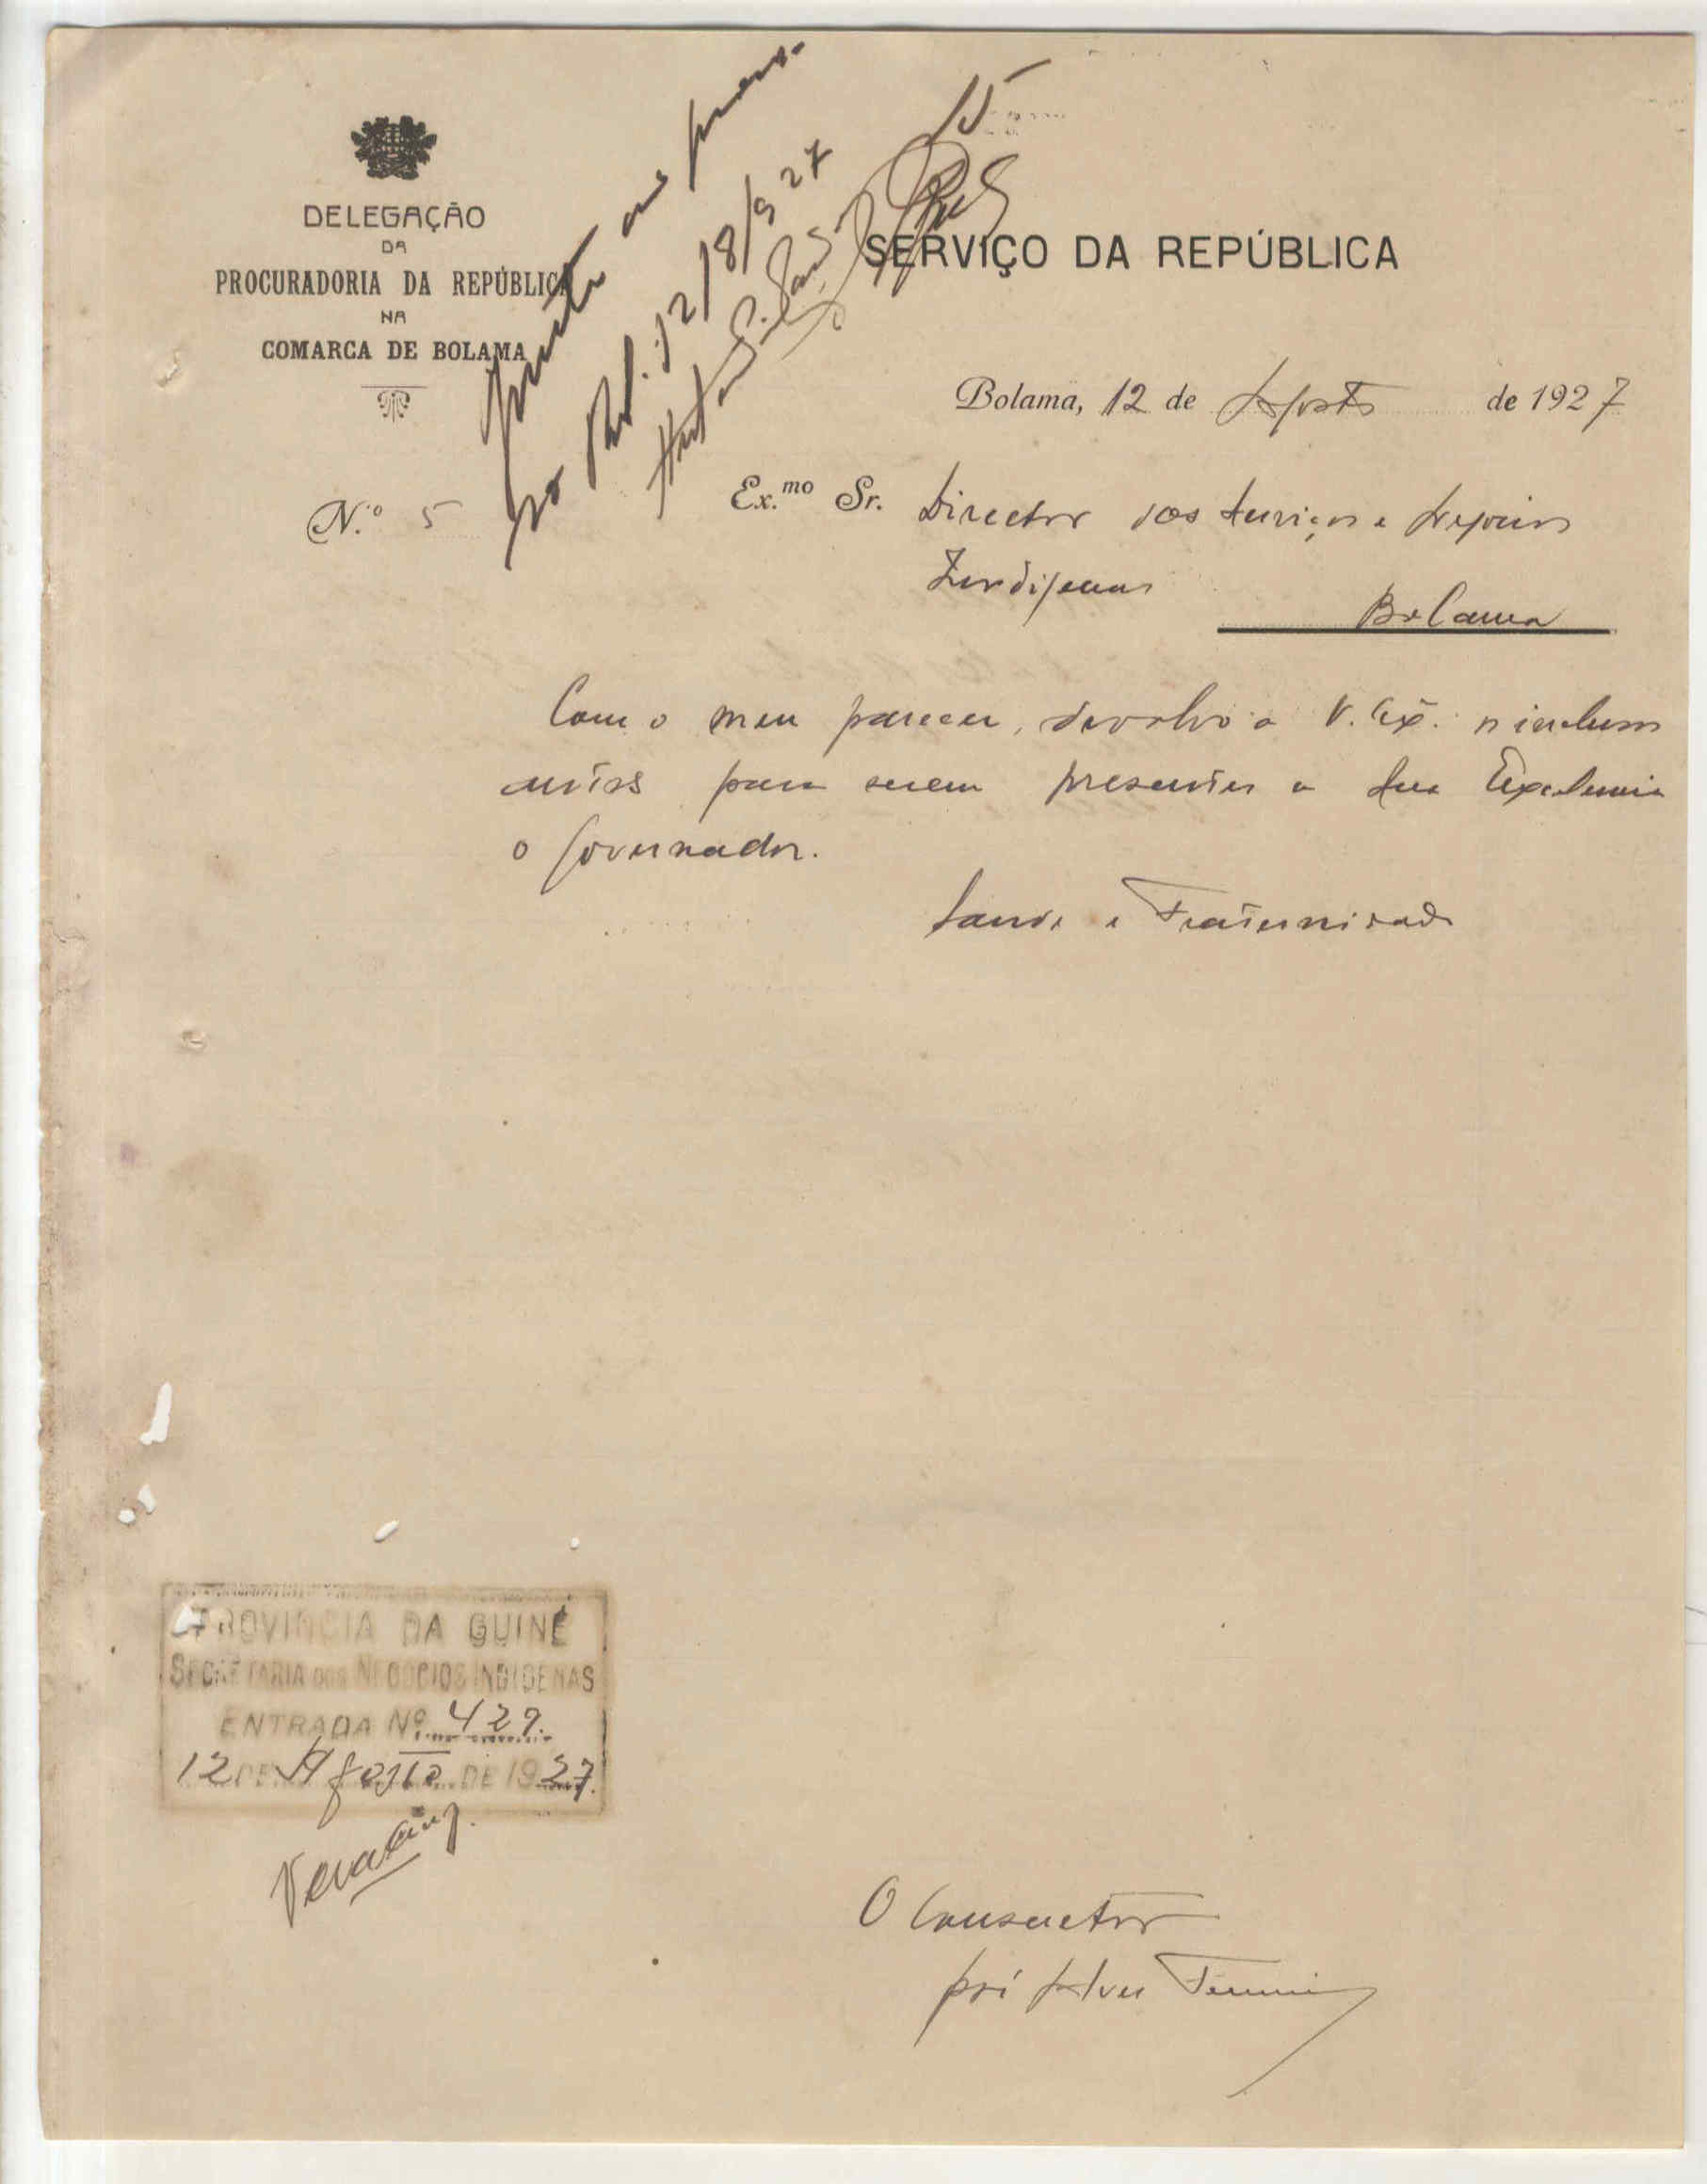 DELEGAÇÃO
DA
PROCURADORIA DA REPÚBLICA
NA
COMARCA DE BOLAMA
Junto ao
12/8/927
SERVIÇO DA REPÚBLICA
Bolama, 12 de Agosto de 1927
N.º 5
Ex.mo Sr. Director dos Serviços e Negocios
Indigenas
Bolama
Com o meu parecer, devolvo a V. Exª. os inclusos
autos para serem presentes a Sua Excelencia
o Governador.
Saude e Fraternidade
PROVINCIA DA GUINÉ
SECRETARIA DOS NEGOCIOS INDIGENAS
ENTRADA Nº 429.
12 DE Agosto DE 1927.
O Consuctor
José Alves Ferreira